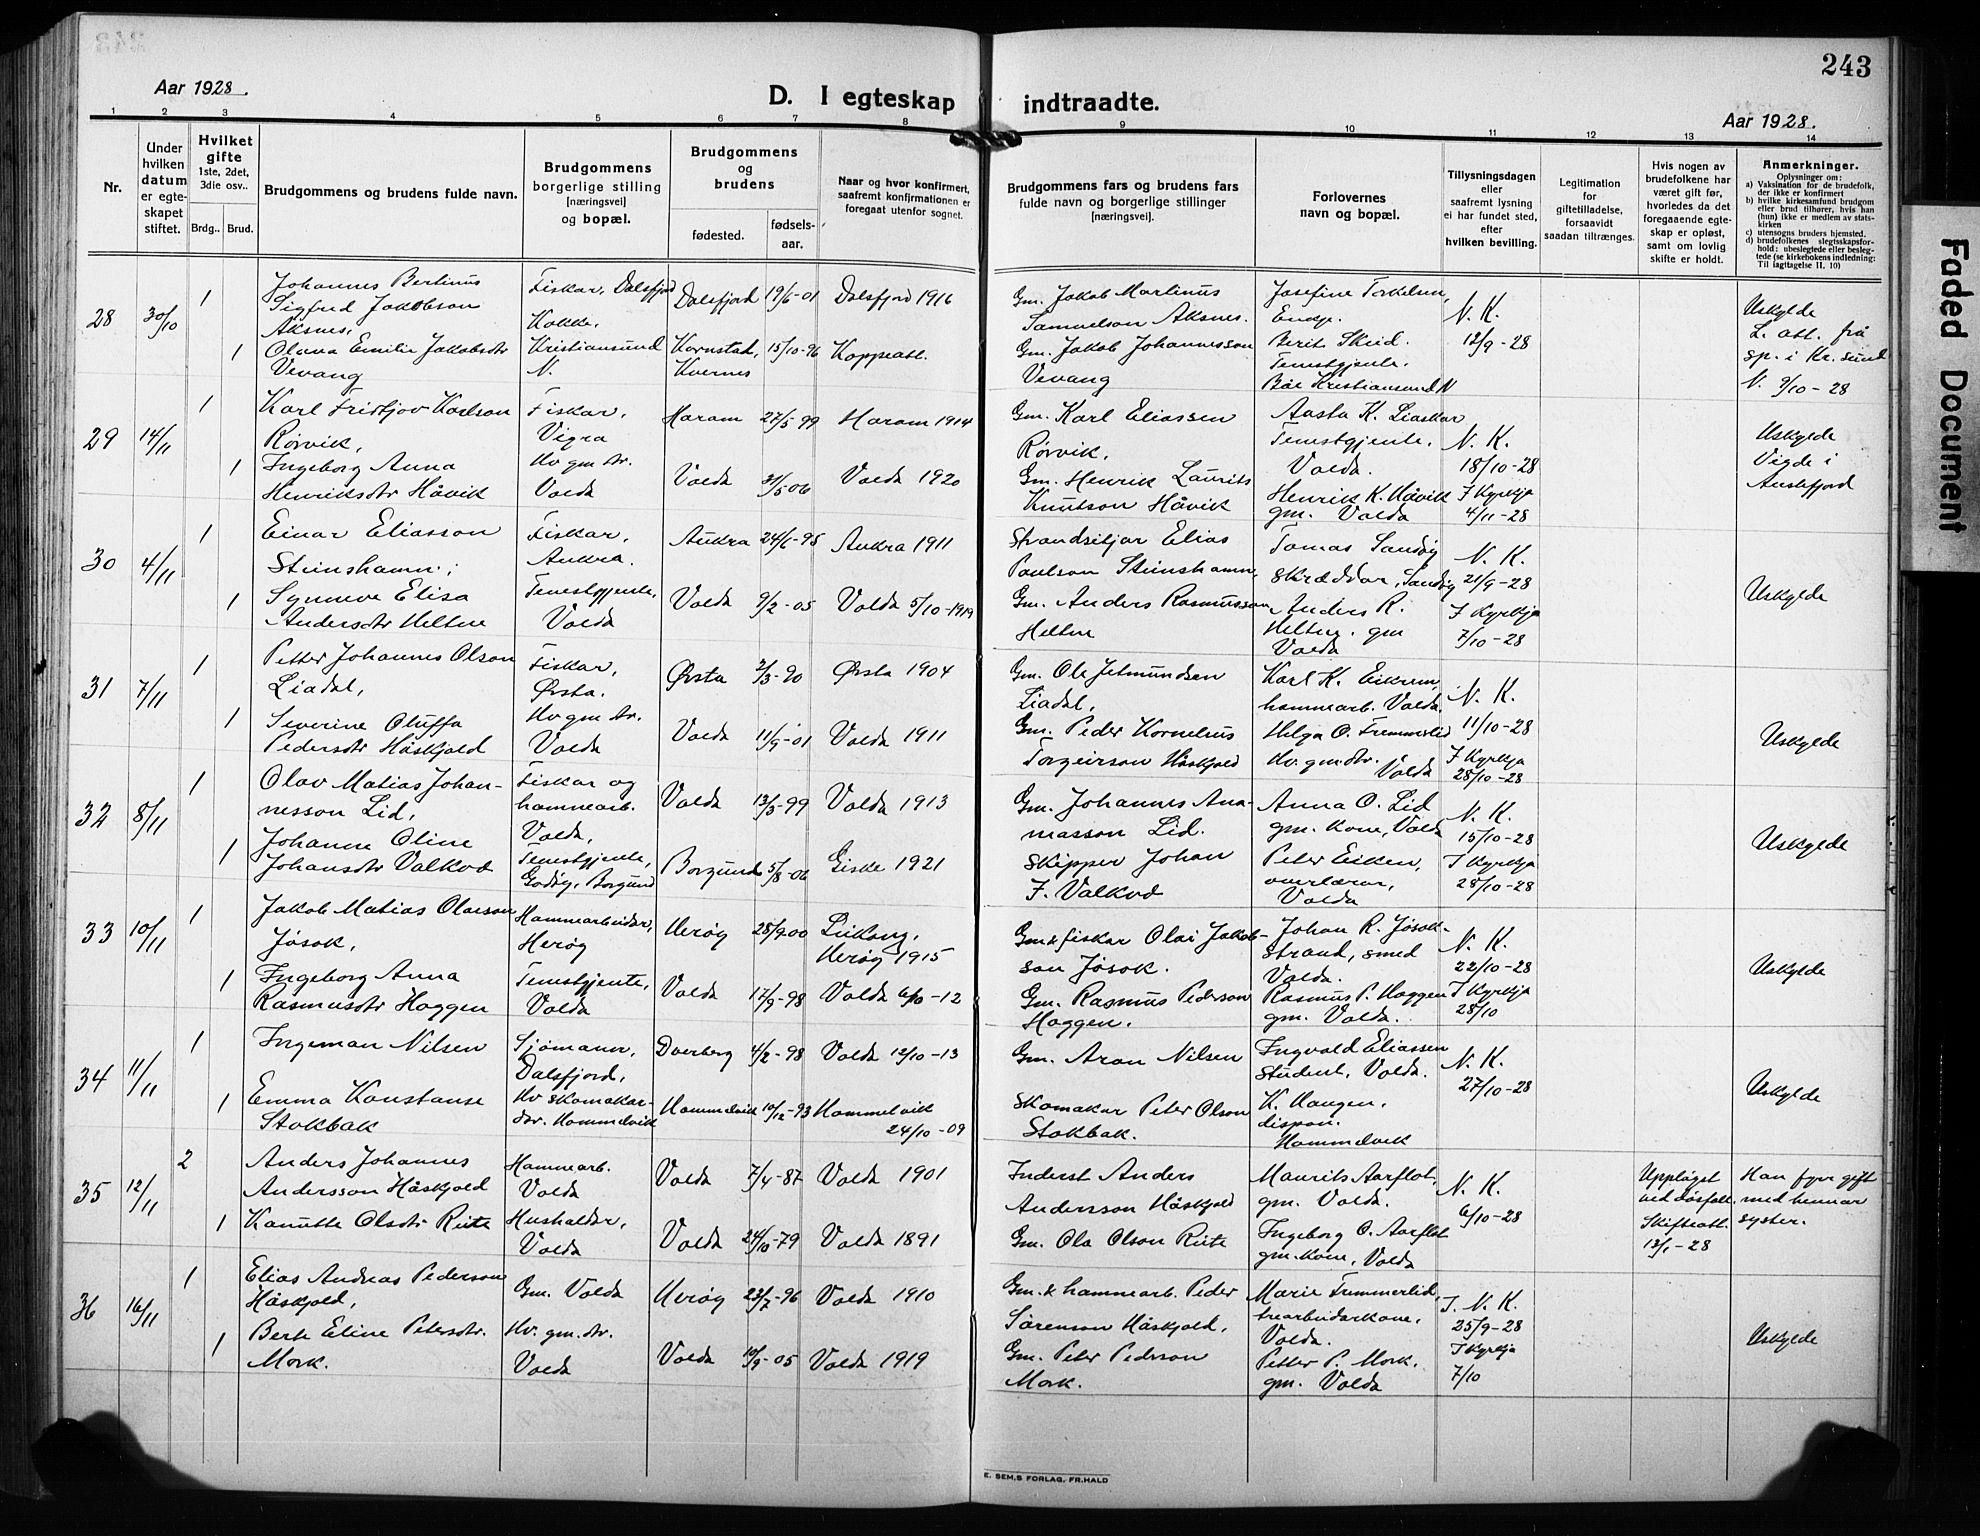 243
Aar 1928.
D. I egteskap indtraadte.
Aar 1928.
1 2 3 4 5 6 7 8 9 10 11 12 13 14
Nr.
Under hvilken datum er egteskapet stiftet.
Hvilket gifte 1ste, 2det, 3die osv..
Brdg.. Brud.
Brudgommens og brudens fulde navn.
Brudgommens borgerlige stilling [næringsvei] og bopæl.
Brudgommens og brudens
fødested.
fødselsaar.
Naar og hvor konfirmert, saafremt konfirmationen er foregaat utenfor sognet.
Brudgommens fars og brudens fars fulde navn og borgerlige stillinger [næringsvei].
Forlovernes navn og bopæl.
Tillysningsdagen eller saafremt lysning ei har fundet sted, efter hvilken bevilling.
Legitimation for giftetilladelse, forsaavidt saadan tiltrænges.
Hvis nogen av brudefolkene har været gift før, hvorledes da det foregaaende egteskap er opløst, samt om lovlig skifte er holdt.
Anmerkninger.
Oplysninger om:
a) Vaksination for de brudefolk, der ikke er konfirmert
b) hvilke kirkesamfund brudgom eller brud tilhører, hvis han (hun) ikke er medlem av statskirken
c) utensogns bruders hjemsted.
d) brudefolkenes slegtsskapsforhold: ubeslegtede eller beslegtede (se kirkebokens indledning: Til Iagttagelse II, 10)
28 30/10 1 Johannes Bertinus Sigfred Jakobson Aksnes, Fiskar, Dalsfjord Dalsfjord 19/6-01 Dalsfjord 1916 Gm. Jakob Martinus Samuelson Aksnes. Josefine Torkelsen, Enkje. N. K. 12/9-28 Uskylde L. att. frå sp. i Kr.sund N. 9/10-28
1 Olava Emilie Jakobsdtr Vevang Kokke, Kristiansund N. Kornstad, Kvernes 15/10-96 Koppeatt. Gm. Jakob Johannesson Vevang Berit Skeid. Tenestgjente. Båe Kristiansund N
29 14/11 1 Karl Fridtjov Karlson Rørvik, Fiskar, Vigra Haram 27/5-99 Haram 1914 Gm. Karl Eliassen Rørvik, Aasta K. Liaskar Tenestgjente. Volda. N. K. 18/10-28 Uskylde Vigde i Austefjord
1 Ingeborg Anna Henriksdtr Håvik Hv gm dtr. Volda Volda 31/5-06 Volda 1920 Gm. Henrik Laurits Knutson Håvik Henrik K. Håvik gm. Volda I Kyrkja 4/11-28
30 4/11 1 Einar Eliasson Steinshamn; Fiskar, Aukra. Aukra 24/6-95 Aukra 1911 Strandsitjar Elias Paulson Steinshamn, Tomas Sandøy skræddar, Sandøy N. K. 21/9-28 Uskylde
1 Synneve Elisa Andersdtr Heltne Tenestgjente, Volda Volda 9/2-05 Volda 5/10-1919 Gm. Anders Rasmusson Heltne Anders R. Heltne. gm Volda I Kyrkja 7/10-28
31 7/11 1 Petter Johannes Olson Liadal, Fiskar, Ørsta. Ørsta 2/3-90 Ørsta 1904 Gm. Ole Jetmundsen Liadal, Karl K. Eikrem, hammearb. Volda. N. K. 11/10-28 Uskylde
1 Severine Oluffa Pedersdtr Håskjold Hv gm dtr. Volda Volda 11/9-01 Volda 1911 Gm. Peder Kornelius Torgeirson Håskjold Helga O. Fremmerlid Hv. gm. dtr. Volda I Kyrkja 28/10-28
32 8/11 1 Olav Matias Johannesson Lid, Fiskar og hammearb. Volda, Volda 13/3-99 Volda 1913 Gm. Johannes Anamasson Lid. Anna O. Lid gm. kone, Volda N. K. 15/10-28 Uskylde
1 Johanne Oline Johansdtr Valkvod Tenestgjente, Godøy, Borgund Borgund 5/8-06 Giske 1921 Skipper Johan J. Valkvod Peter Eiken, overlærar, Volda I Kyrkja 28/10-28
33 10/11 1 Jakob Matias Olaison Jøsok, Hammearbeidar, Herøy Herøy 28/9-00 Leikong, Herøy 1915 Gm & fiskar Olai Jakobson Jøsok. Johan R. Jøsokstrand, smed Volda. N. K. 22/10-28 Uskylde
1 Ingeborg Anna Rasmusdtr Hoggen Tenestgjente, Volda Volda 17/9-98 Volda 6/10-12 Gm. Rasmus Pederson Hoggen. Rasmus P. Hoggen gm. Volda. I Kyrkja 28/10
34 11/11 1 Ingeman Nilsen Sjømann, Dalsfjord, Dverberg 4/2-98 Volda 12/10-13 Gm. Aron Nilsen Ingvald Eliassen student, Volda. N. K. 27/10-28 Uskylde
1 Emma Konstanse Stokbak Hv skomakardtr. Hommelvik Hommelvik 10/12-93 Hommelvik 24/10-09 Skomakar Peter Olson Stokbak. K. Haugen, dispon. Hommelvik
35 12/11 2 Anders Johannes Andersson Håskjold Hammearb. Volda Volda 7/4-87 Volda 1901 Inderst Anders Andersson Håskjold Maurits Aarflot, gm. Volda. N. K. 6/10-28 Uppløyst ved dødsfall. Skifteatt. 13/1-28 Han fyrr gift med hennar syster.
1 Kanutte Olsdtr Riite Hushaldar, Volda Volda 24/10-79 Volda 1891 Gm. Ola Olson Riite Ingeborg O. Aarflot gm. kone, Volda
36 16/11 1 Elias Andreas Pederson Håskjold, Gm. Volda Herøy 23/7-96 Volda 1910 Gm. & hammearb. Peder Sørenson Håskjold, Marie Fremmerlid, trearbeidarkone, Volda. I. N. K. 25/9-28 Uskylde
1 Berte Eline Petersdtr. Mork. Hv. gm. dtr. Volda Volda 10/9-05 Volda 1919 Gm. Peter Pederson Mork. Petter P. Mork, gm. Volda I Kyrkja 7/10
E. SEM,S FORLAG, FR.HALD
Faded Document